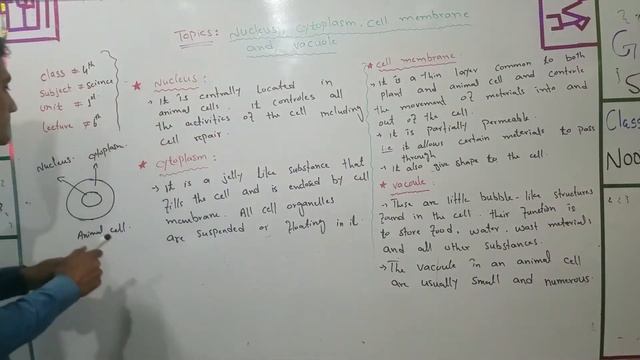 Topics: Nucleus, cytoplasm, cell membrane
and vacuole
class = 4th
subject = science
unit = 1st
Lecture = 6th
Nucleus. cytoplasm.
Animal cell.
★ Nucleus:
→ It is centrally located in
animal cells. It controles all
the activities of the cell including
cell repair.
★ cytoplasm:
→ It is a jelly like substance that
fills the cell and is enclosed by cell
membrane. All cell organelles
are suspended or floating in it.
★ cell membrane:
→ It is a thin layer common to both
plant and animal cell and controle
the movement of materials into and
out of the cell.
→ it is partially permeable.
i.e it allows certain materials to pass
through.
→ It also give shape to the cell.
★ vacuole:
→ These are little bubble-like structures
found in the cell. their function is
to store food, water, wast materials
and all other substances.
→ The vacuole in an animal cell
are usually small and numerous.
Class